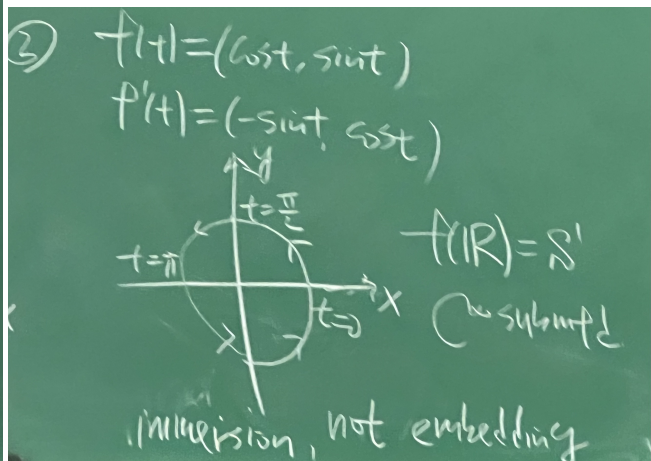 ② f(t)=(cost, sint)
f'(t)=(-sint, cost)
y
t=π/2
t=π
f(ℝ)=S¹
x
t=0
C^∞ submfd
immersion, not embedding